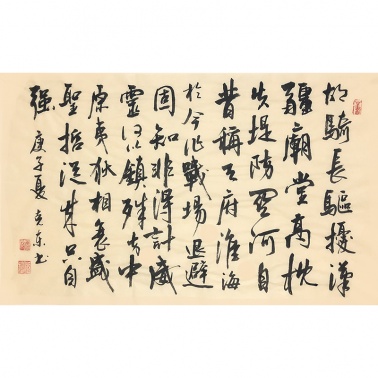 胡騎長驅擾漢
疆廟堂高枕
失堤防関河自
昔稱天府淮海
於今作戰場退避
固知非得計威
靈何以鎮殊方中
原夷狄相衰盛
聖哲從来只自
强
庚子夏东书